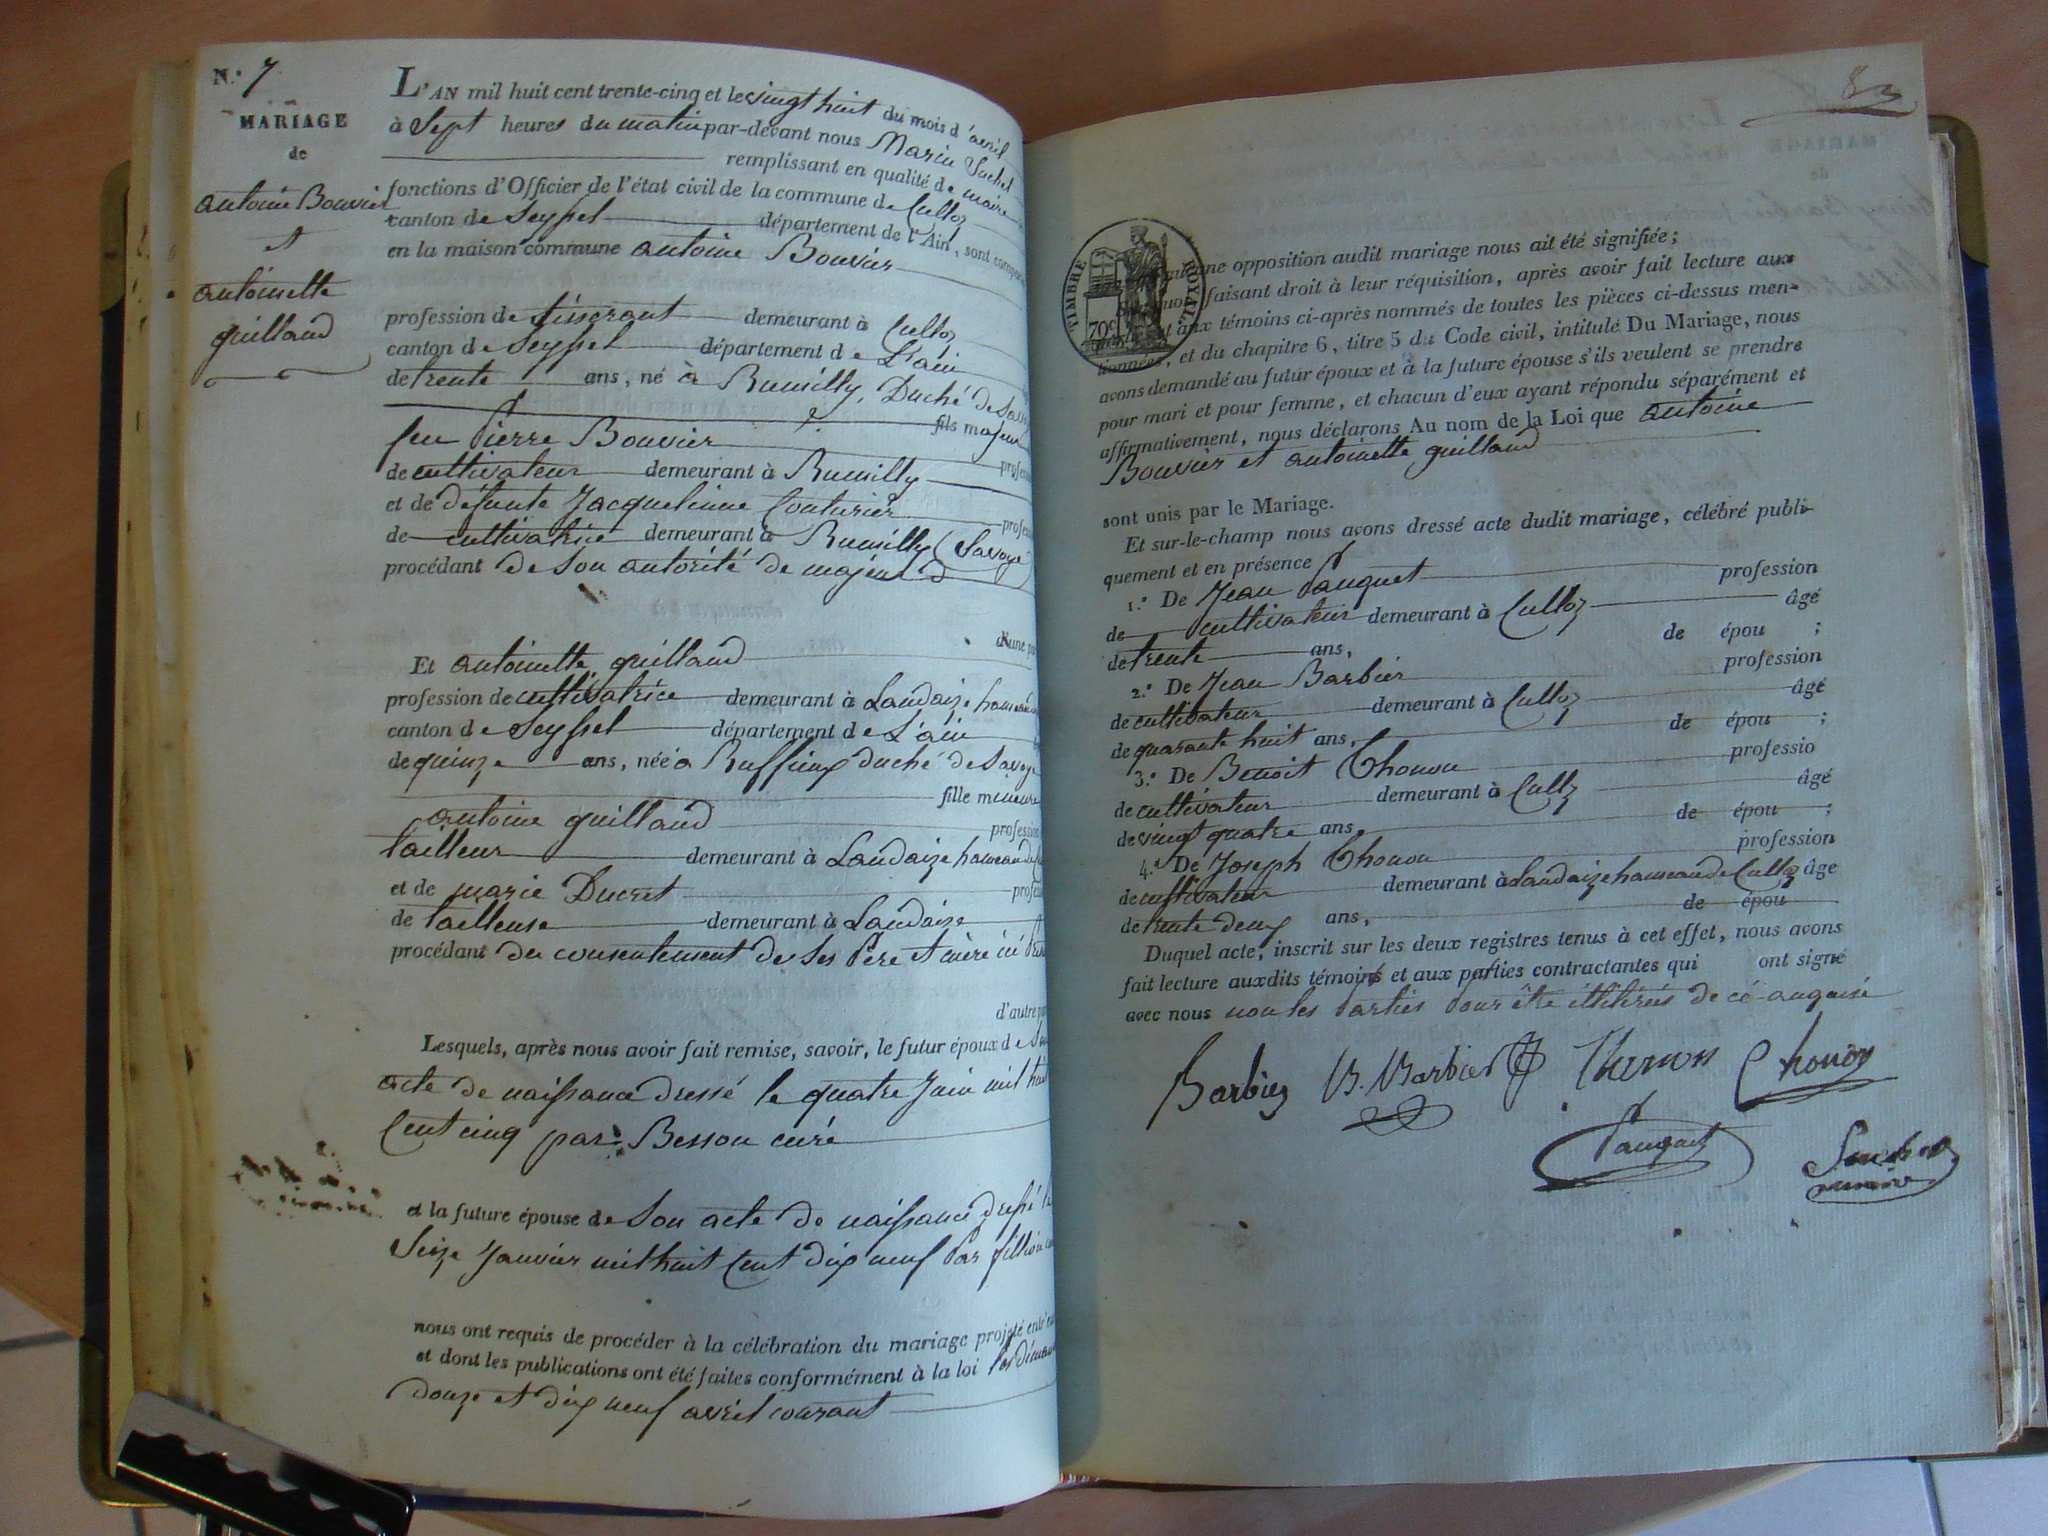 N.º 7
MARIAGE
de
antoine Bouvier
et
antoinette
guilland
L'AN mil huit cent trente-cinq et le vingt huit du mois d'avril
à Sept heures du matin par-devant nous Marin Suchet
remplissant en qualité de maire
fonctions d'Officier de l'état civil de la commune de Culloz
canton de Seyssel département de l'Ain, sont
en la maison commune antoine Bouvier
profession de tisserant demeurant à Culloz
canton de Seyssel département de L'ain
de trente ans, né à Rumilly, Duché de
fils majeur
feu Pierre Bouvier
de cultivateur demeurant à Rumilly
et de défunte Jacquelinne Couturier
de cultivatrice demeurant à Rumilly (Savoye)
procédant de son autorité de majeur
d'une
Et antoinette guilland
profession de cultivatrice demeurant à Landaize hameau
canton de Seyssel département de L'ain
de quinze ans, née à Ruffieux duché de Savoye
fille mineure
antoine guilland
tailleur demeurant à Landaize hameau de
et de marie Ducret
de tailleuse demeurant à Landaize
procédant du consentement de ses Père et mère
d'autre
Lesquels, après nous avoir fait remise, savoir, le futur époux de
acte de naissance dressé le quatre Juin mil huit
Cent cinq par Besson curé
et la future épouse de Son acte de naissance dressé
Seize Janvier mil huit Cent dix neuf Par fillion
nous ont requis de procéder à la célébration du mariage projeté
et dont les publications ont été faites conformément à la loi
douze et dix neuf avril courant
83
TIMBRE ROYAL
70c
opposition audit mariage nous ait été signifiée;
faisant droit à leur réquisition, après avoir fait lecture aux
aux témoins ci-après nommés de toutes les pièces ci-dessus men-
tionnées, et du chapitre 6, titre 5 du Code civil, intitulé Du Mariage, nous
avons demandé au futur époux et à la future épouse s'ils veulent se prendre
pour mari et pour femme, et chacun d'eux ayant répondu séparément et
affirmativement, nous déclarons Au nom de la Loi que antoine
Bouvier et antoinette guilland
sont unis par le Mariage.
Et sur-le-champ nous avons dressé acte dudit mariage, célébré publi-
quement et en présence
1.º De Jean Pauguet profession
de cultivateur demeurant à Culloz âgé
de trente ans, de épou ;
2.º De Jean Barbier profession
de cultivateur demeurant à Culloz âgé
de quarante huit ans, de épou ;
3.º De Benoit Chonou professio
de cultivateur demeurant à Culloz âgé
de vingt quatre ans, de épou ;
4.º De Joseph Chonou profession
de cultivateur demeurant à Landaize hameau de Culloz âgé
de trente deux ans, de épou
Duquel acte, inscrit sur les deux registres tenus à cet effet, nous avons
fait lecture auxdits témoins et aux parties contractantes qui ont signé
avec nous non les Parties Pour être illitérés de ce anquise
Barbier B. Barbier Chonou
Pauguet Suchet
maire